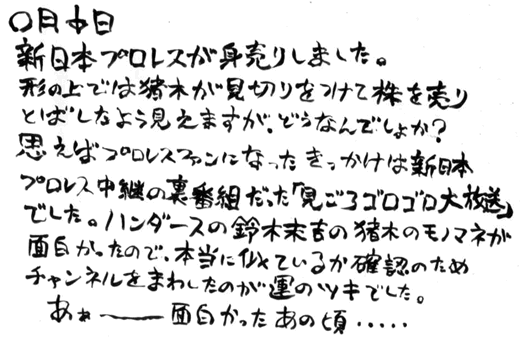 〇月中日
新日本プロレスが身売りしました。
形の上では猪木が見切りをつけて株を売り
とばしたよう見えますが、どうなんでしょか?
思えばプロレスファンになったきっかけは新日本
プロレス中継の裏番組だった「見ごろゴロゴロ大放送」
でした。ハンダースの鈴木末吉の猪木のモノマネが
面白かったので、本当に似ているか確認のため
チャンネルをまわしたのが運のツキでした。
あぁ——面白かったあの頃・・・・・